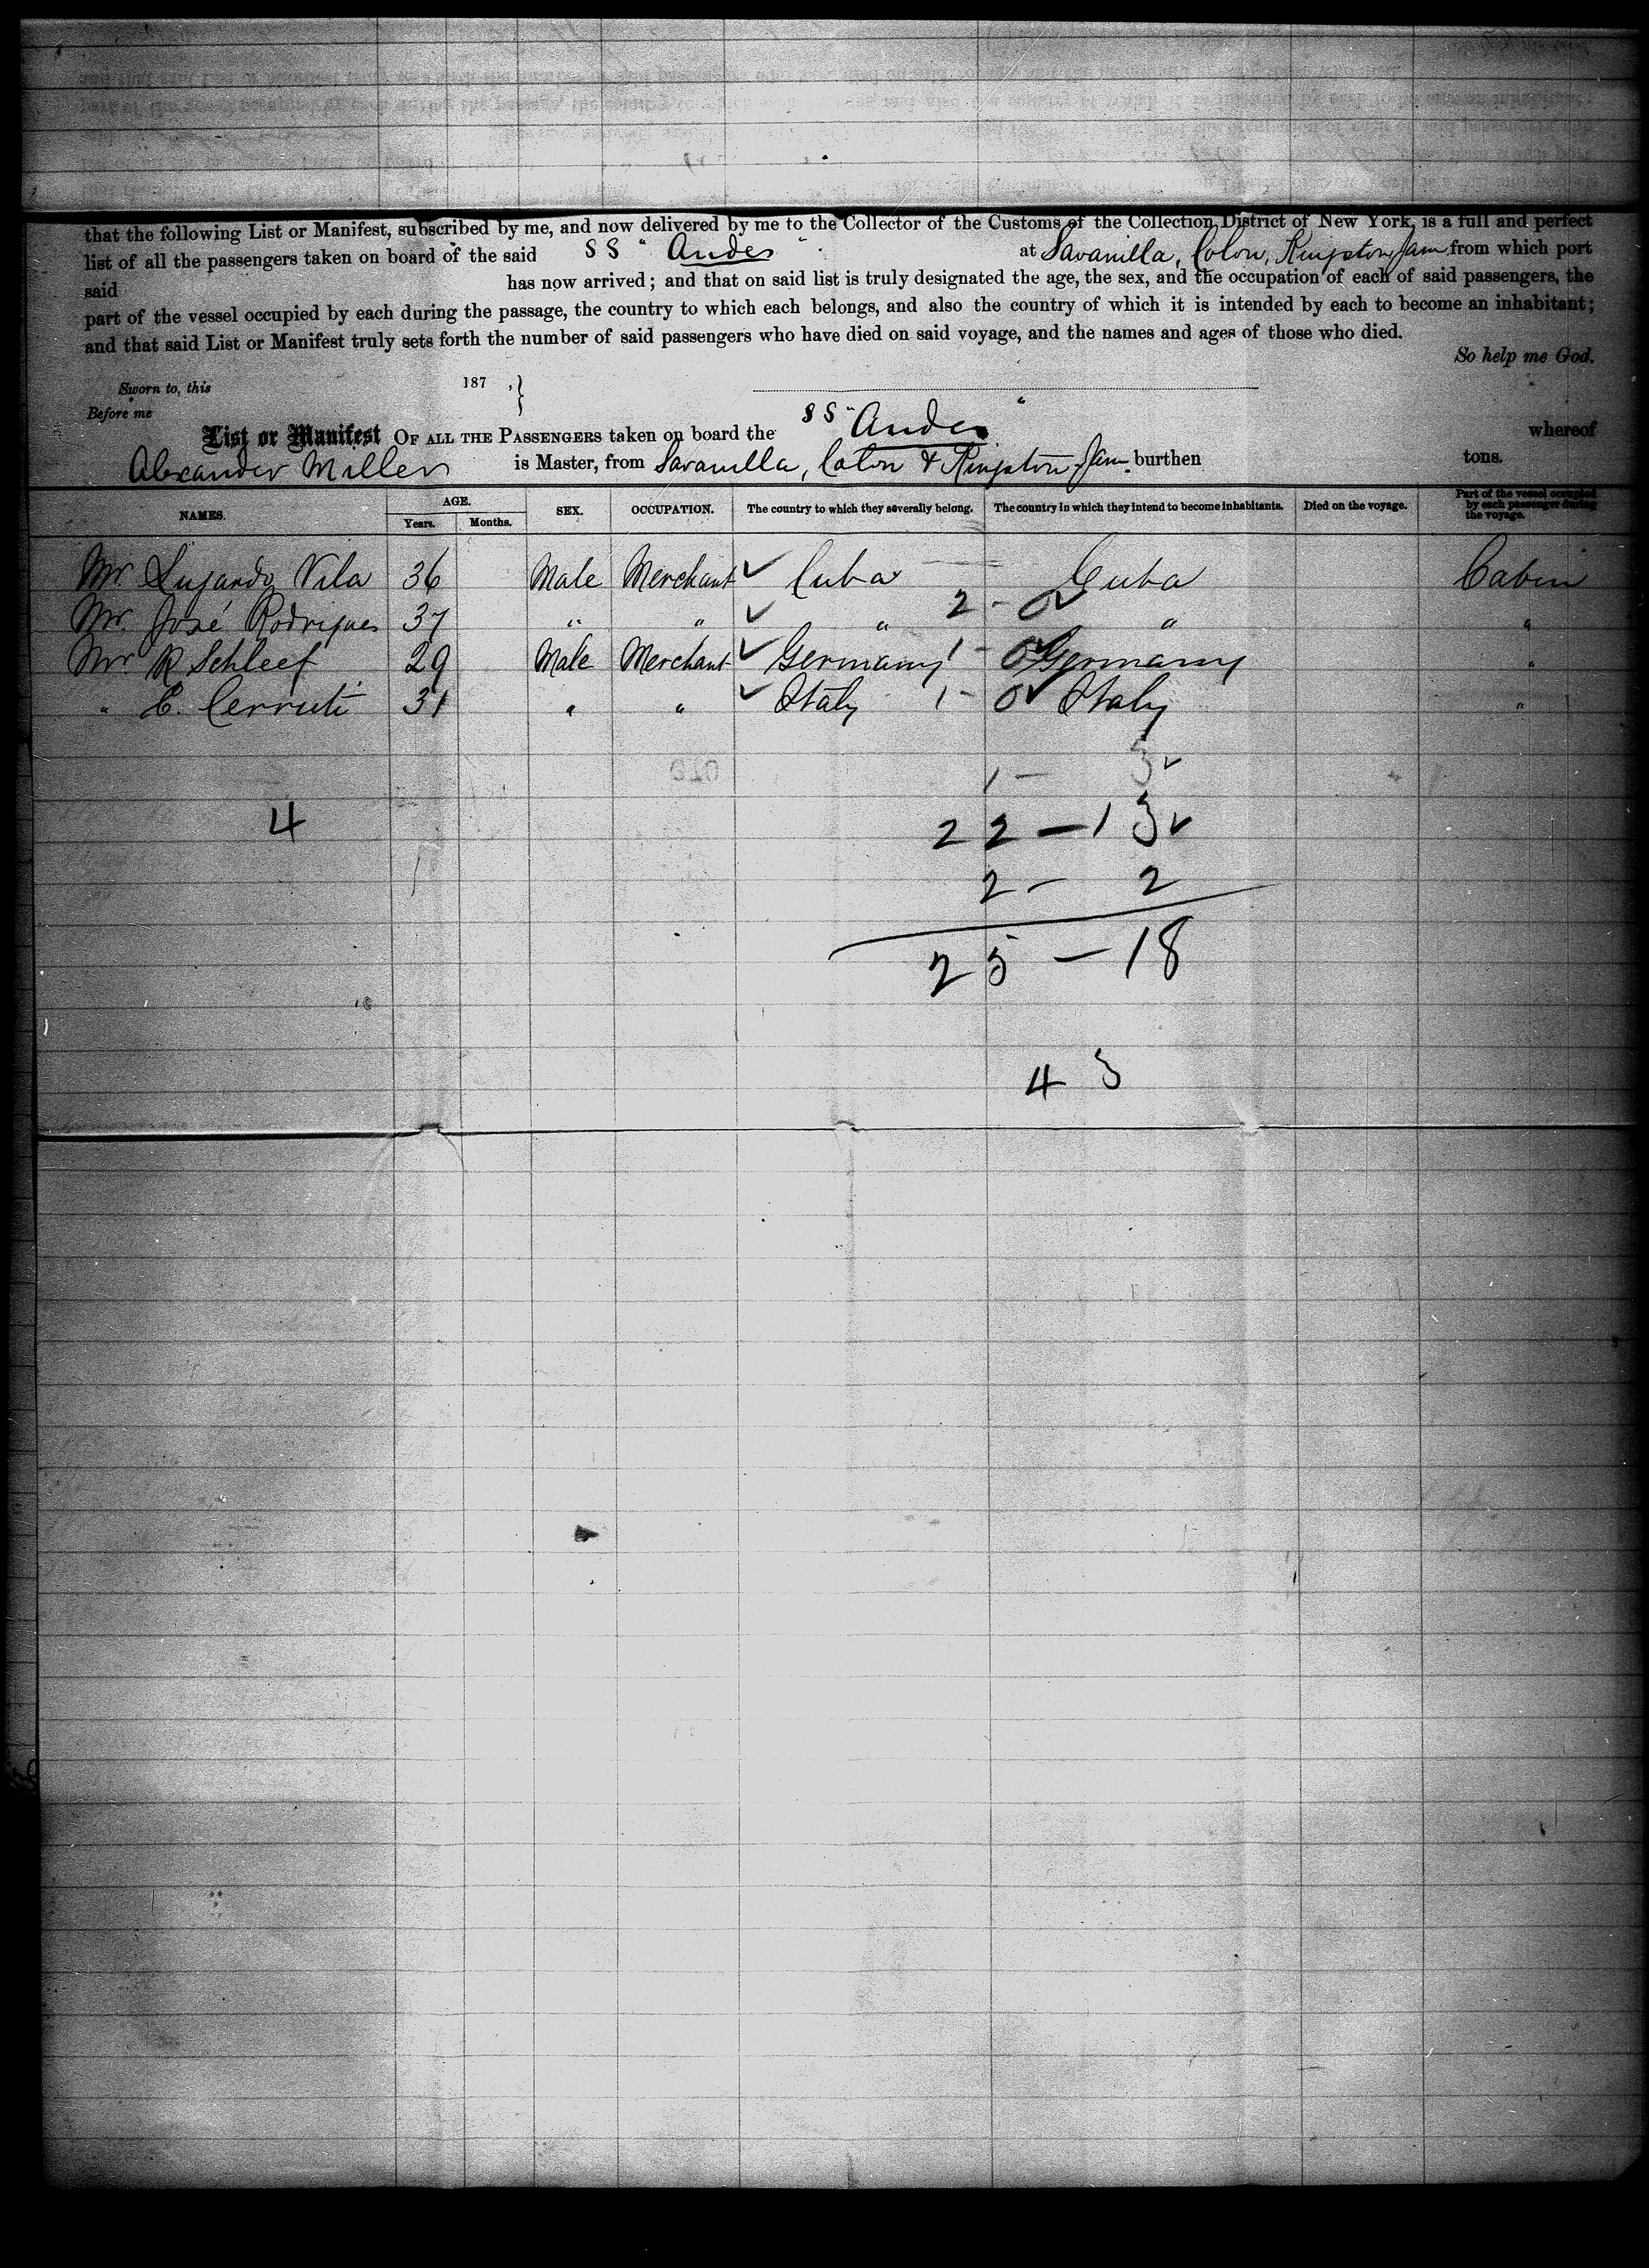 that the following List or Manifest, subscribed by me, and now delivered by me to the Collector of the Customs of the Collection District of New York, is a full and perfect
list of all the passengers taken on board of the said SS "Andes" at Savanilla, Colon, Kingston Jam from which port
said has now arrived; and that on said list is truly designated the age, the sex, and the occupation of each of said passengers, the
part of the vessel occupied by each during the passage, the country to which each belongs, and also the country of which it is intended by each to become an inhabitant;
and that said List or Manifest truly sets forth the number of said passengers who have died on said voyage, and the names and ages of those who died.
So help me God.
Sworn to, this 187 ,}
Before me
List or Manifest OF ALL THE PASSENGERS taken on board the SS "Andes" whereof
Alexander Miller is Master, from Savanilla, Colon & Kingston Jam. burthen tons.
NAMES. AGE. Years. Months. SEX. OCCUPATION. The country to which they severally belong. The country in which they intend to become inhabitants. Died on the voyage. Part of the vessel occupied by each passenger during the voyage.
Mr. Lujardo Vila 36 Male Merchant ✓ Cuba Cuba Cabin
Mr. José Rodrigues 37 " " ✓ " 2 - 0✓ " "
Mr R Schleef 29 Male Merchant ✓ Germany 1 - 0✓ Germany "
" E. Cerruti 31 " " ✓ Italy 1 - 0✓ Italy "
1 - 3✓
4 22 - 13✓
2 - 2
25 - 18
43